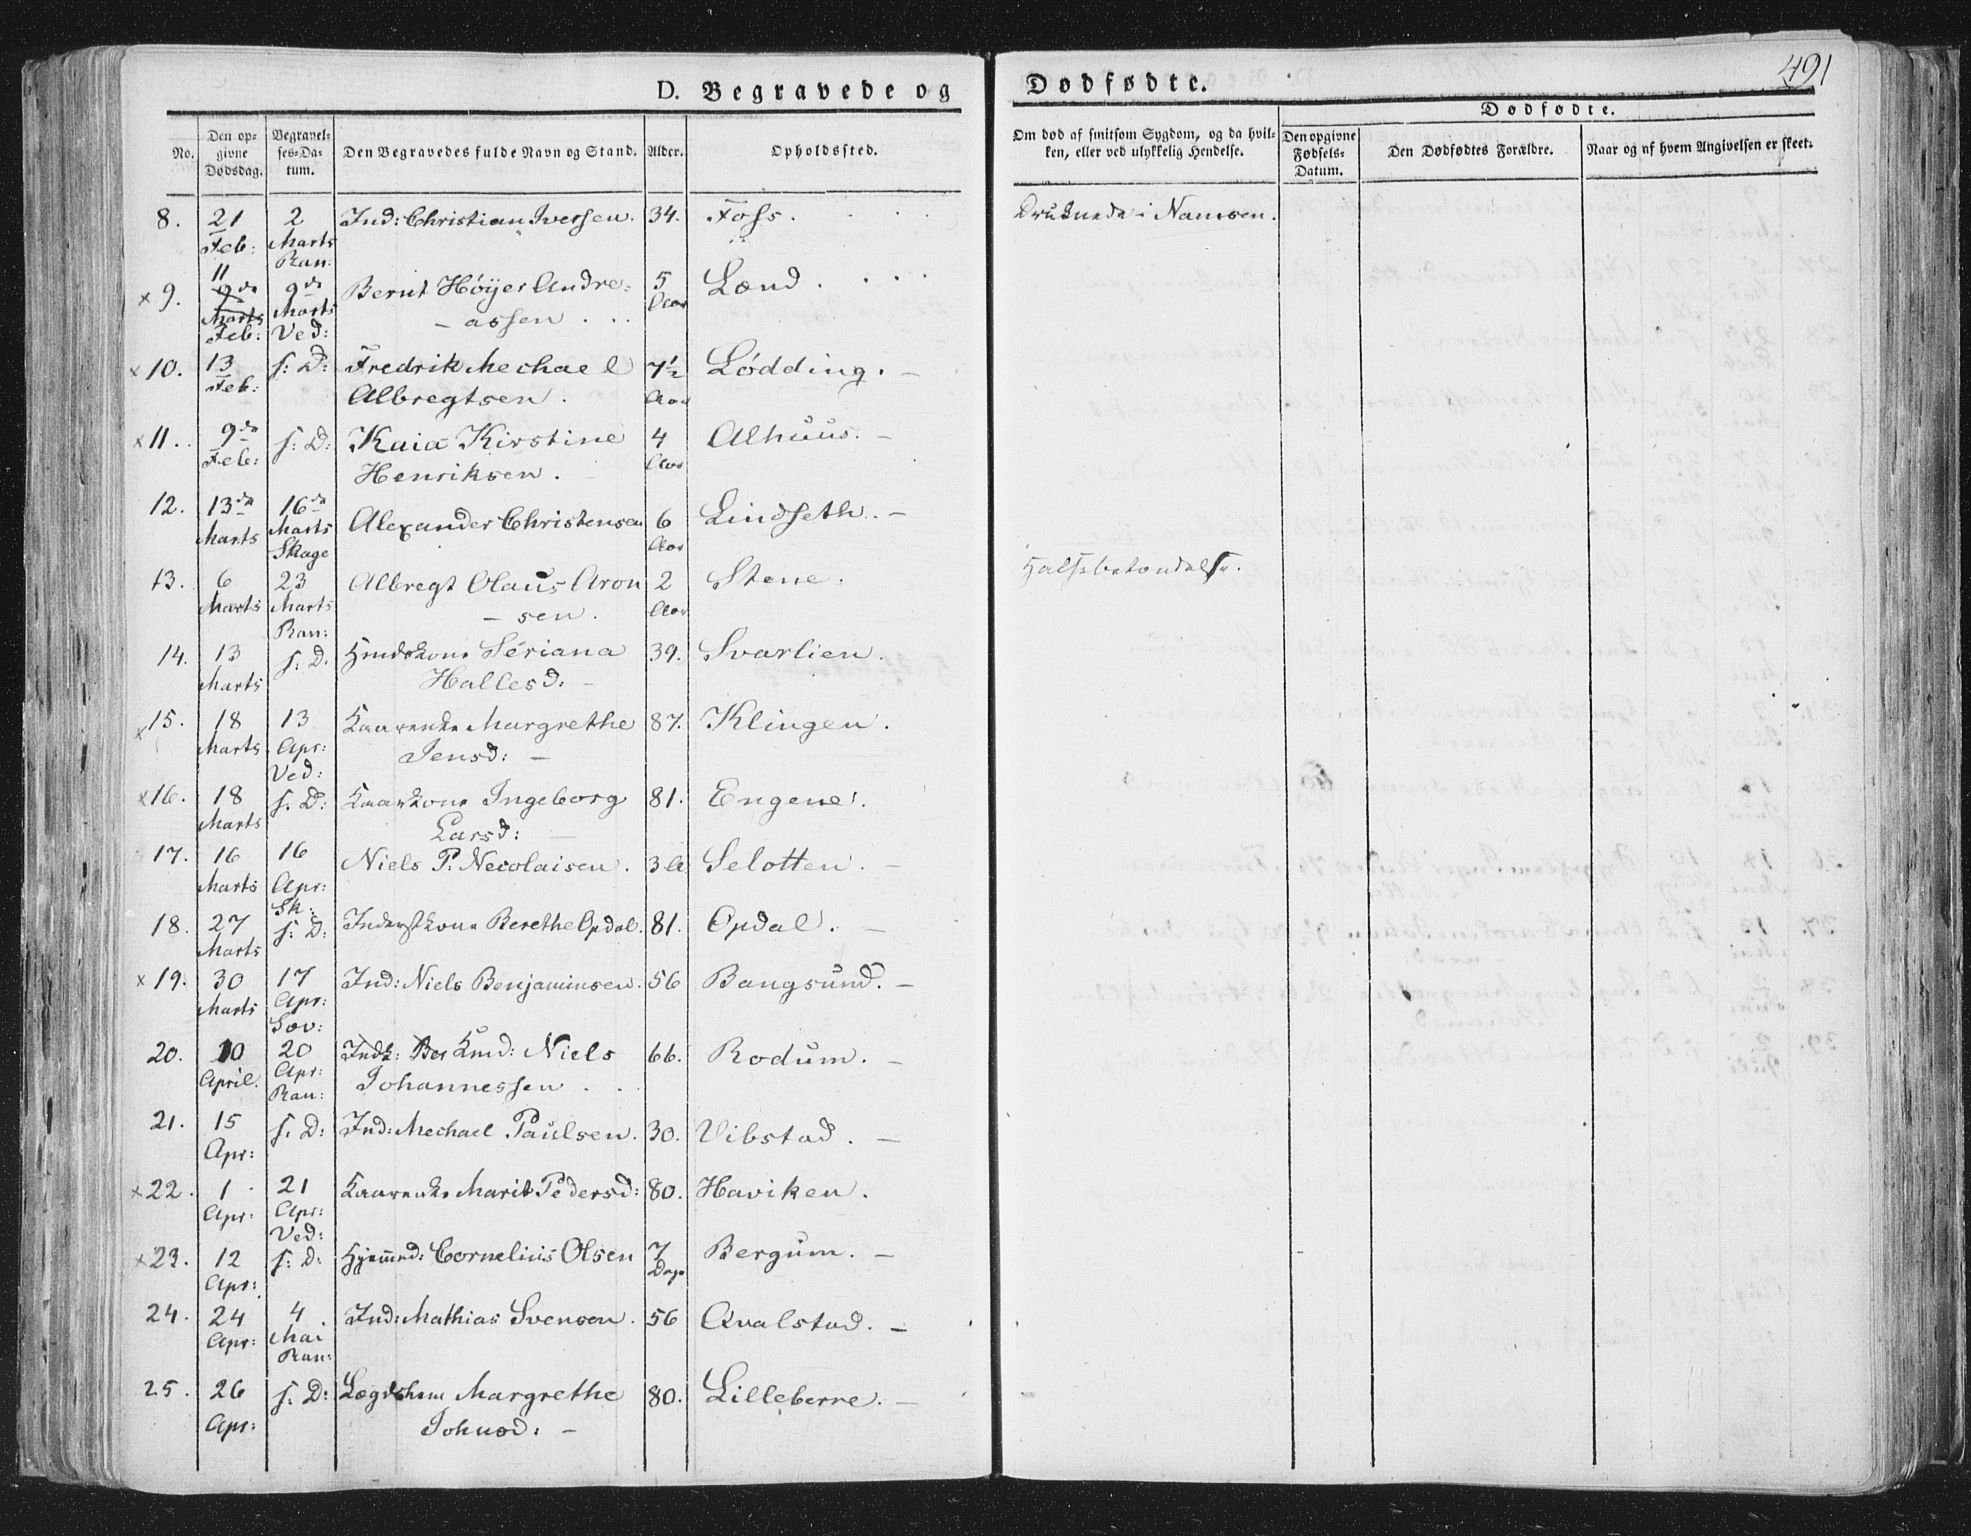 491
D. Begravede og Dødfødte.
Dødfødte.
No. Den opgivne Dødsdag. Begravelses-Datum. Den Begravedes fulde Navn og Stand. Alder. Opholdssted. Om død af smitsom Sygdom, og da hvilken, eller ved ulykkelig Hendelse. Den opgivne Fødsels-Datum. Den Dødfødtes Forældre. Naar og af hvem Angivelsen er skeet.
8. 21 Feb: 2 Marts Ran: Ind: Christian Iversen. 34. Foss. Druknede i Namsen.
x 9. 11 Feb: 9de Marts Ved: Bernt Høyer Andreassen 5 Aar Lænd
x 10. 13 Feb: s: D: Fredrik Mechael Albregtsen. 7½ Aar Lødding. –
x 11. 9de Feb: s: D: Kaia Kirstine Henriksen. 4 Aar Alhuus. –
12. 13de Marts 16de Marts Skage Alexander Christensen 6 Aar Lindseth. –
13. 6 Marts 23 Marts Ran: Albregt Olaus Aronsen. 2 Aar Stene. Halsebetændelse.
14. 13 Marts s: D: Hmdskone Seriana Hallesd: – 39. Svarlien.
x 15. 18 Marts 13 Apr: Ved: Kaarenke Margrethe Jensd: – 87. Klingen.
x 16. 18 Marts s: D: Kaarkone Ingeborg Larsd: – 81. Engene.
17. 16 Marts 16 Apr: Sk: Niels P. Necolaisen. 3 A Selotten. –
18. 27 Marts s: D: Inderstkone Berethe Opdal. 81. Opdal. –
x 19. 30 Marts 17 Apr: Sov: Ind: Niels Benjaminsen. 56 Bangsund. –
20. 10 April. 20 Apr: Ran: Kmd: Niels Johannessen 66. Rodum. –
21. 15 Apr: s: D: Ind: Mechael Paulsen. 30. Vibstad. –
x 22. 1 Apr: 21 Apr: Ved: Kaarenke Marit Pedersd: 80. Haviken.
x 23. 12 Apr: s: D: Hjemmed: Cornelius Olsen 7 Dage Bergum. –
24. 24 Apr: 4 Mai Ran: Ind: Mathias Svensen. 56 Qvalstad. –
25. 26 Apr: s: D: Lægdslem Margrethe Johnsd: – 80. Lilleberre. –